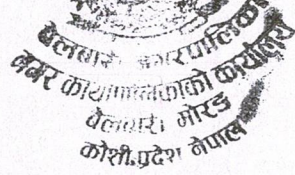 बेलबारी नगरपालिका
नगर कार्यपालिकाको कार्यालय
बेलबारी, मोरङ
कोशी प्रदेश नेपाल